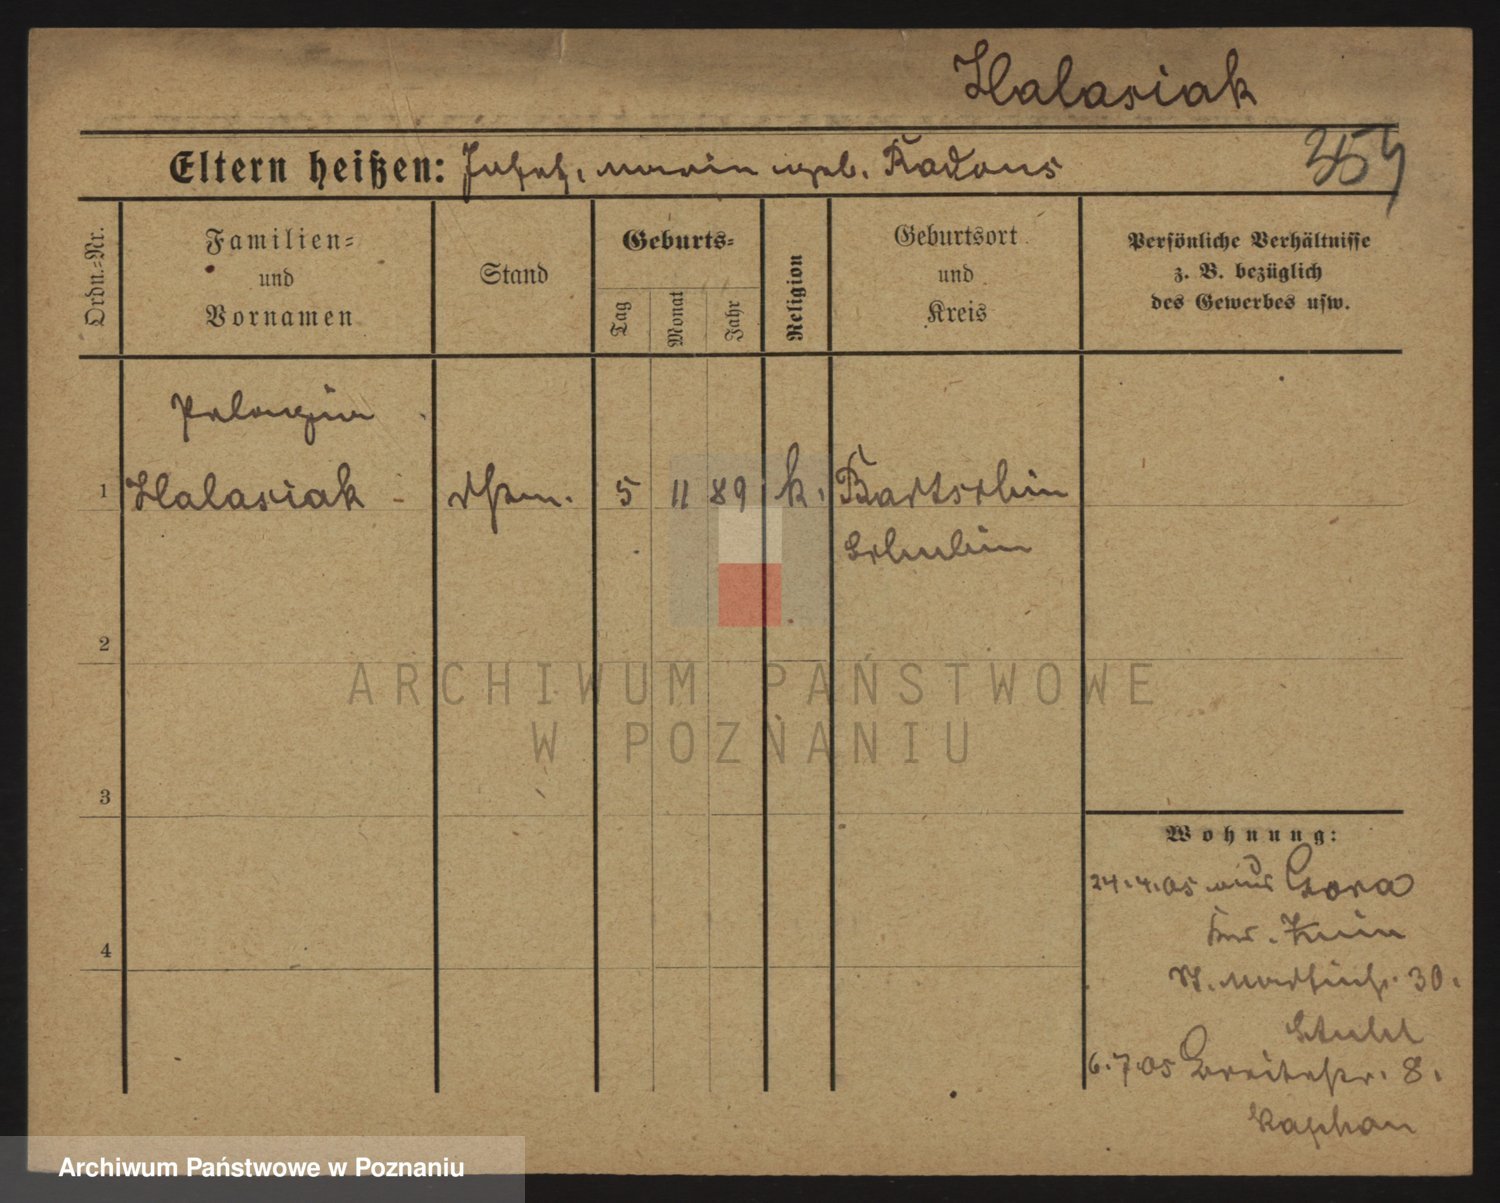 Halasiak
Eltern heißen: Josef, Marie geb. Radons
Ordn.=Nr.
Familien=
und
Vornamen
Stand
Geburts=
Tag
Monat
Jahr
Religion
Geburtsort
und
Kreis
Persönliche Verhältnisse
z. B. bezüglich
des Gewerbes usw.
Pelagia
1 Halasiak 5 11 89 k. Bartschin
Schubin
2
3
4
Wohnung:
24.4.05 aus Gora
Kr. Znin
St. Martinstr. 30.
6.7.05 Breitestr. 8.
Kaphan
ARCHIWUM PAŃSTWOWE
W POZNANIU
Archiwum Państwowe w Poznaniu